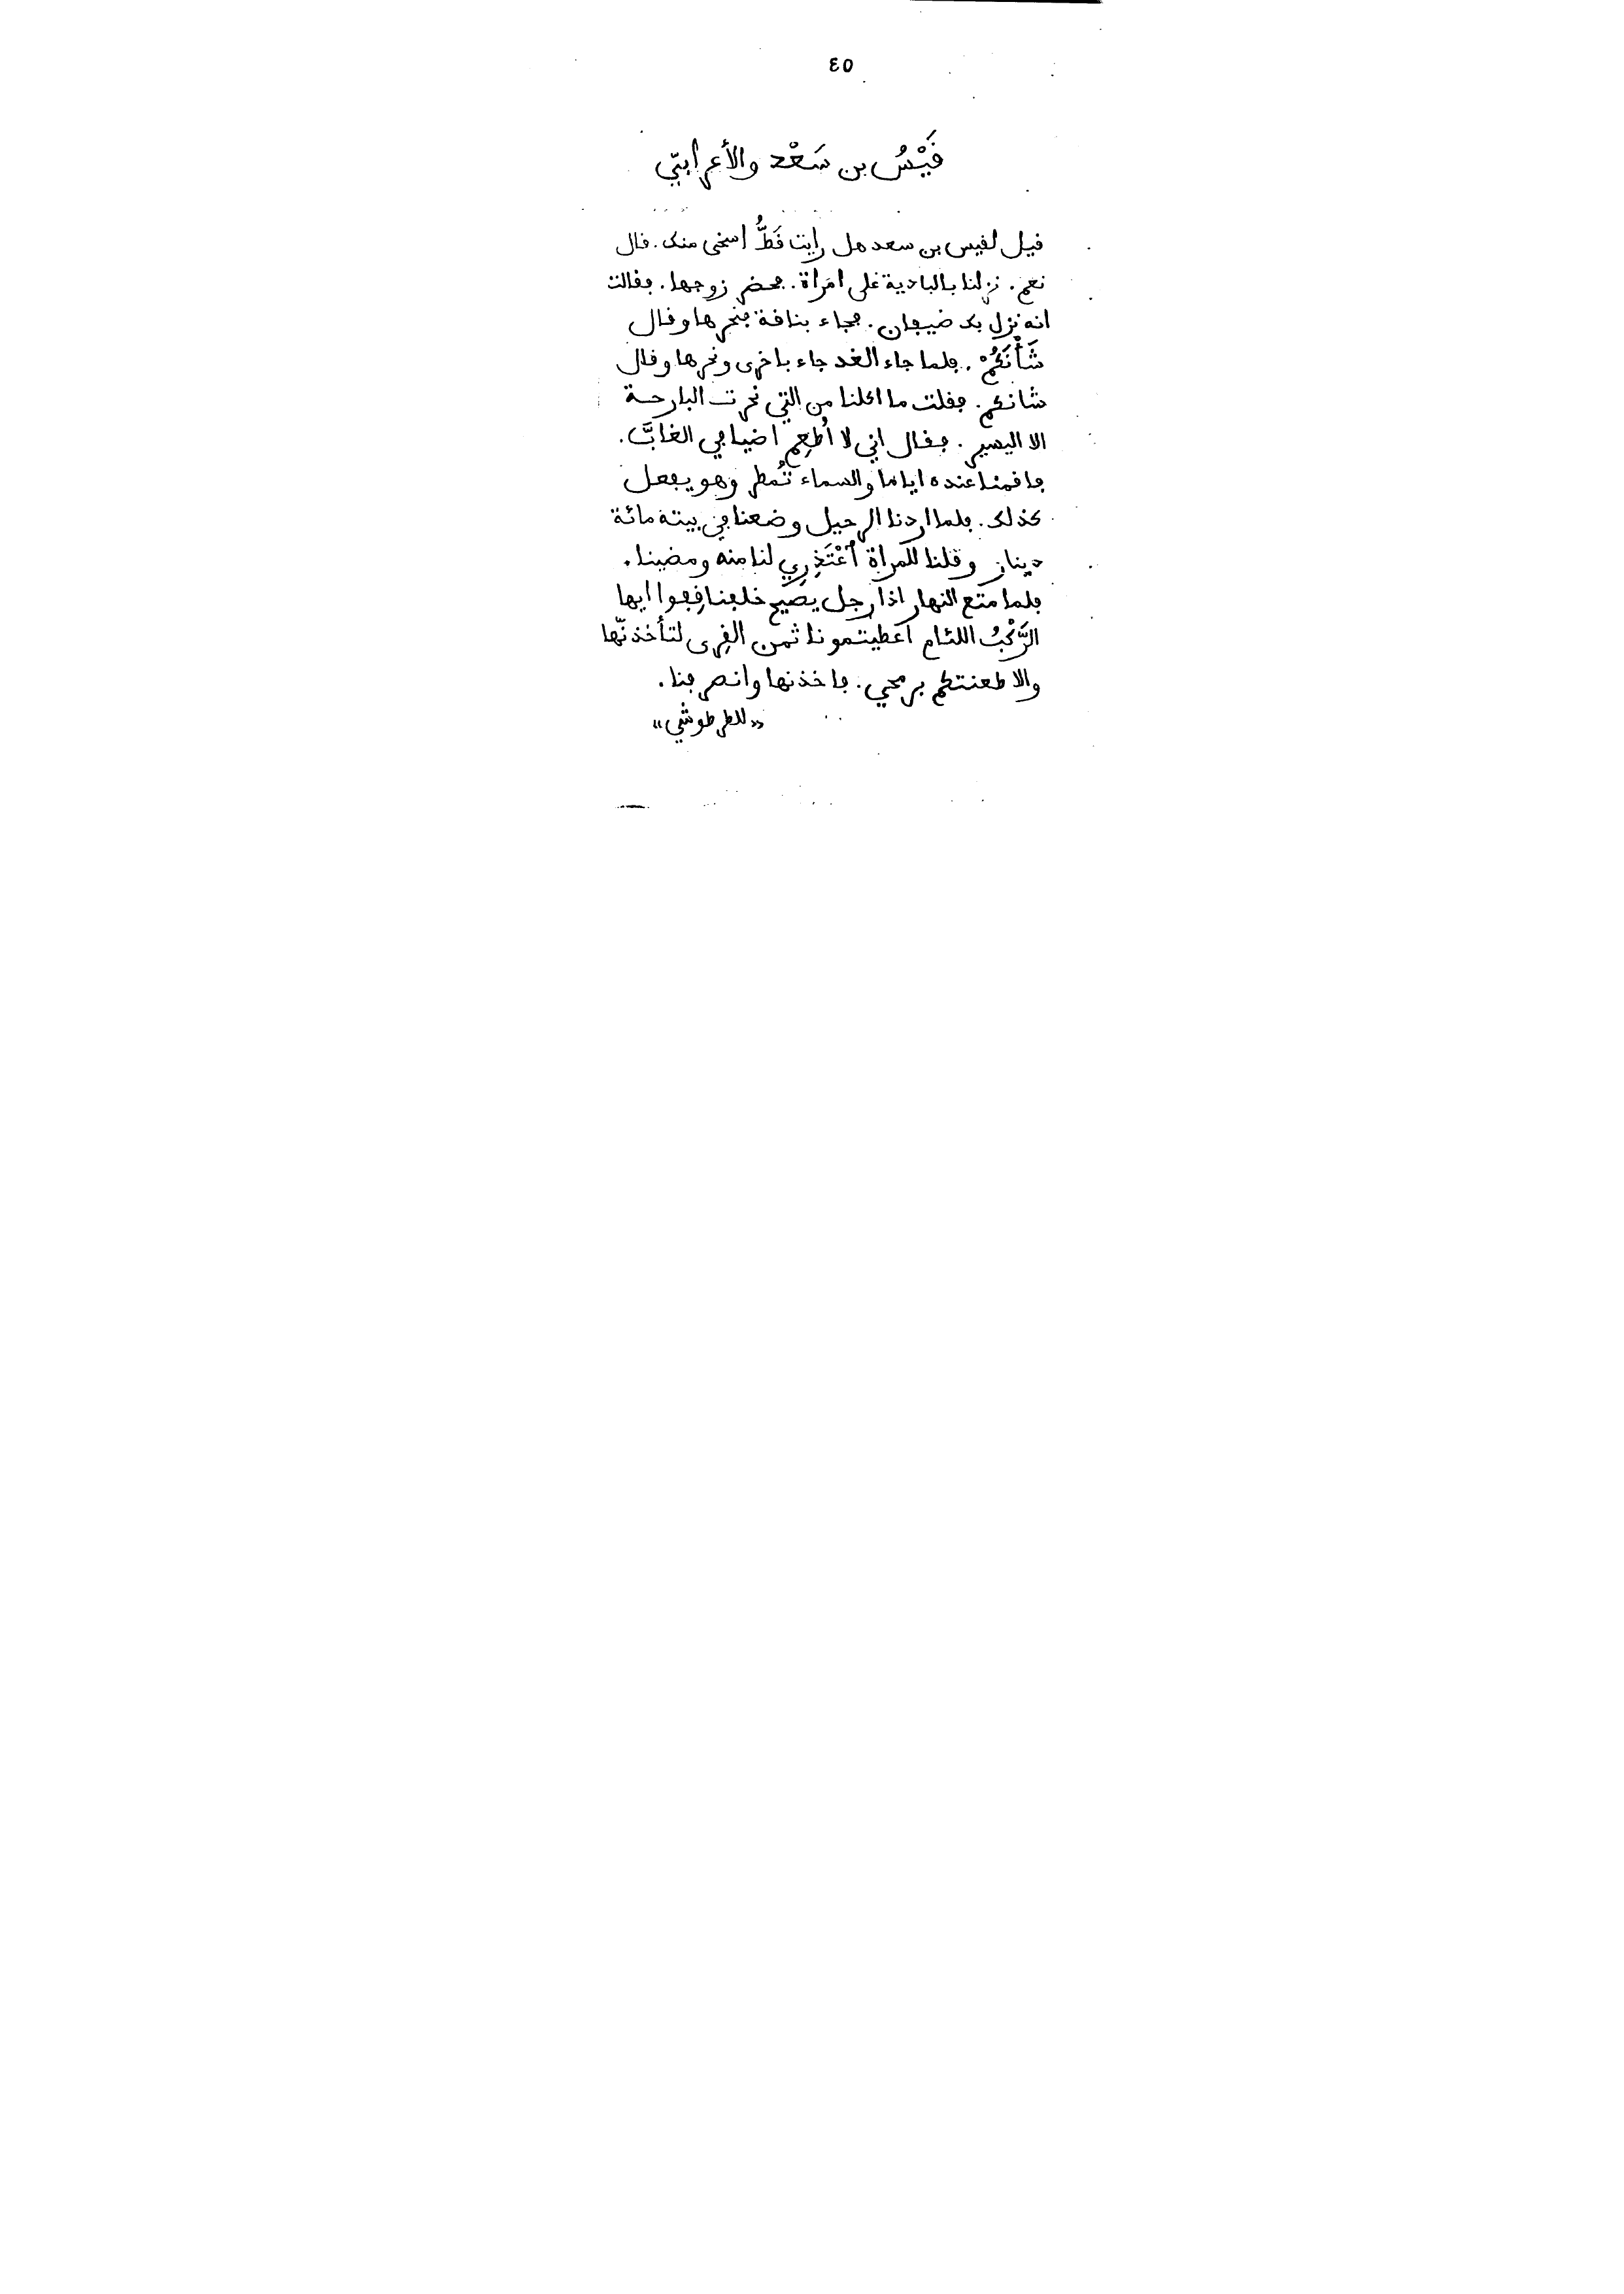 ٤٥
قَيْسُ بن سَعْد والأعرابيّ
قيل لقيس بن سعد هل رايت قَطُّ اسخى منك. قال
نعم. نزلنا بالبادية على امراة. فحضر زوجها. فقالت
انه نزل بك ضيفان. فجاء بناقة فنحرها وقال
شَأْنَكُمْ. فلما جاء الغد جاء باخرى ونحرها وقال
شانكم. فقلت ما اكلنا من التي نحرت البارحة
الا اليسير. فقال اني لا أُطعِم اضيافي الغابَّ.
فاقمنا عنده اياما والسماء تُمطر وهو يفعل
كذلك. فلما اردنا الرحيل وضعنا في بيته مائة
دينار وقلنا للمراة أعْتَذِرِي لنا منه ومضينا.
فلما متع النهار اذا رجل يصيح خلفنا قِفوا ايها
الرَّكْبُ اللئام اعطيتمونا ثمن القِرى لتأخذنّها
والا طعنتكم برمحي. فاخذنها وانصرفنا.
«للطرطوشي»